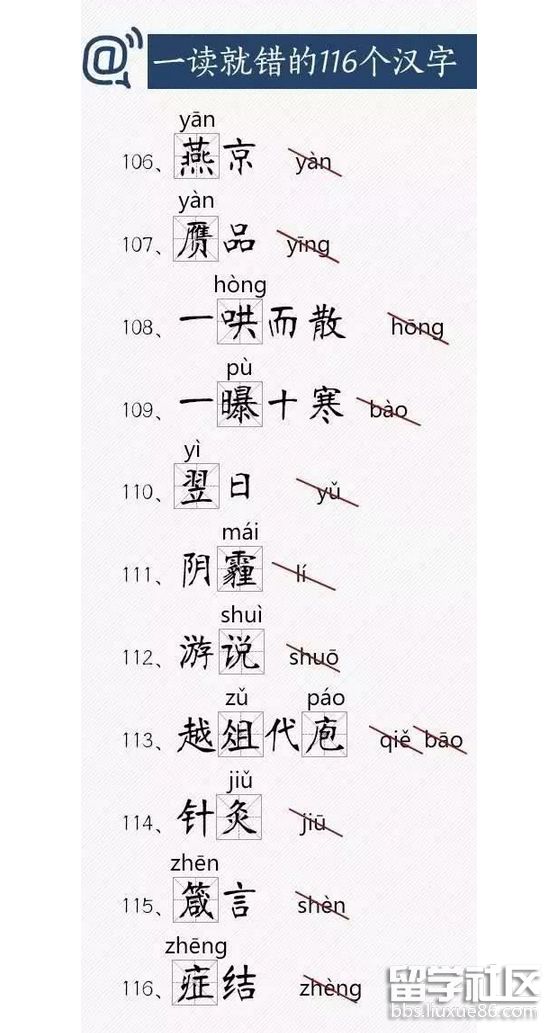 @ 一读就错的116个汉字
yān
106、燕京 yàn
yàn
107、赝品 yīng
hòng
108、一哄而散 hōng
pù
109、一曝十寒 bào
yì
110、翌日 yǔ
mái
111、阴霾 lí
shuì
112、游说 shuō
zǔ páo
113、越俎代庖 qiě bāo
jiǔ
114、针灸 jiū
zhēn
115、箴言 shèn
zhēng
116、症结 zhèng
留学社区
bbs.liuxue86.com